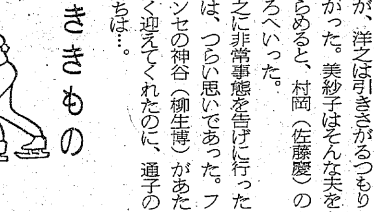 が、洋之は引きさがるつもり
がった。美紗子はそんな夫を
らめると、村岡（佐藤慶）の
ろへいった。
之に非常事態を告げに行った
は、つらい思いであった。フ
ンセの神谷（柳生博）があた
く迎えてくれたのに、通子の
ちは…。
ききもの